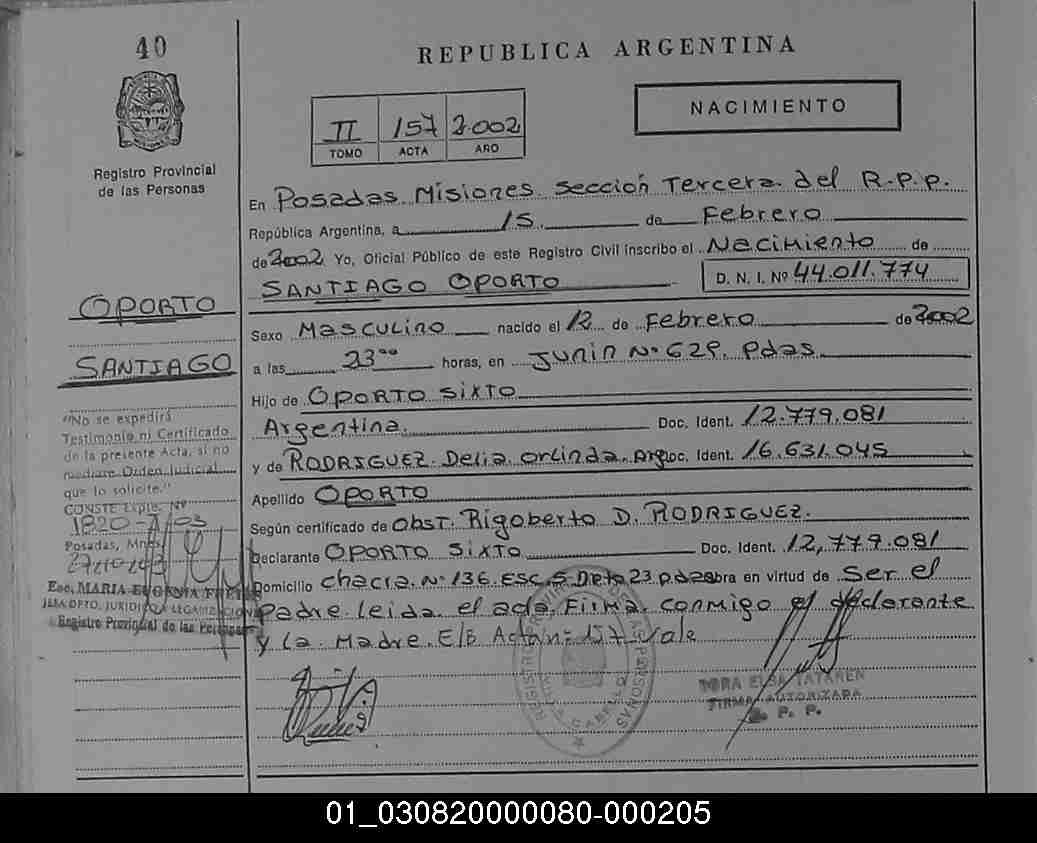 40
REPUBLICA ARGENTINA
NACIMIENTO
II 157 2.002
TOMO ACTA AÑO
Registro Provincial
de las Personas
En Posadas Misiones Sección Tercera del R.P.P.
República Argentina, a 15 de Febrero
de 2002 Yo, Oficial Público de este Registro Civil inscribo el Nacimiento de
SANTIAGO OPORTO D. N. I. Nº 44.011.774
OPORTO
SANTIAGO
Sexo Masculino nacido el 12 de Febrero de 2002
a las 23⁰⁰ horas, en Junin Nº 629. pdas
Hijo de OPORTO SixTO
Argentina. Doc. Ident. 12.779.081
y de RODRIGUEZ Delia Orlinda. Arg. Doc. Ident. 16.631.045
Apellido OPORTO
Según certificado de Obst. Rigoberto D. RODRIGUEZ.
Declarante OPORTO SixTO Doc. Ident. 12,779.081
Domicilio chacra Nº 136 Esc. 5 Dpto 23 pdas obra en virtud de Ser el
Padre Leida el acta Firma conmigo el declarante
y La Madre. E/E Acta nº 157 Vale
"No se expedirá
Testimonio ni Certificado
de la presente Acta, si no
mediare Orden Judicial
que lo solicite."
CONSTE Expte. Nº
1820-A/03
Posadas, Mnes.
Esc. MARIA EUGENIA
JEFA DPTO. JURIDICO LEGALIZACION
Registro Provincial de las Personas
REGISTRO PROVINCIAL DE LAS PERSONAS
FIRMA AUTORIZADA
R. P. P.
01_030820000080-000205